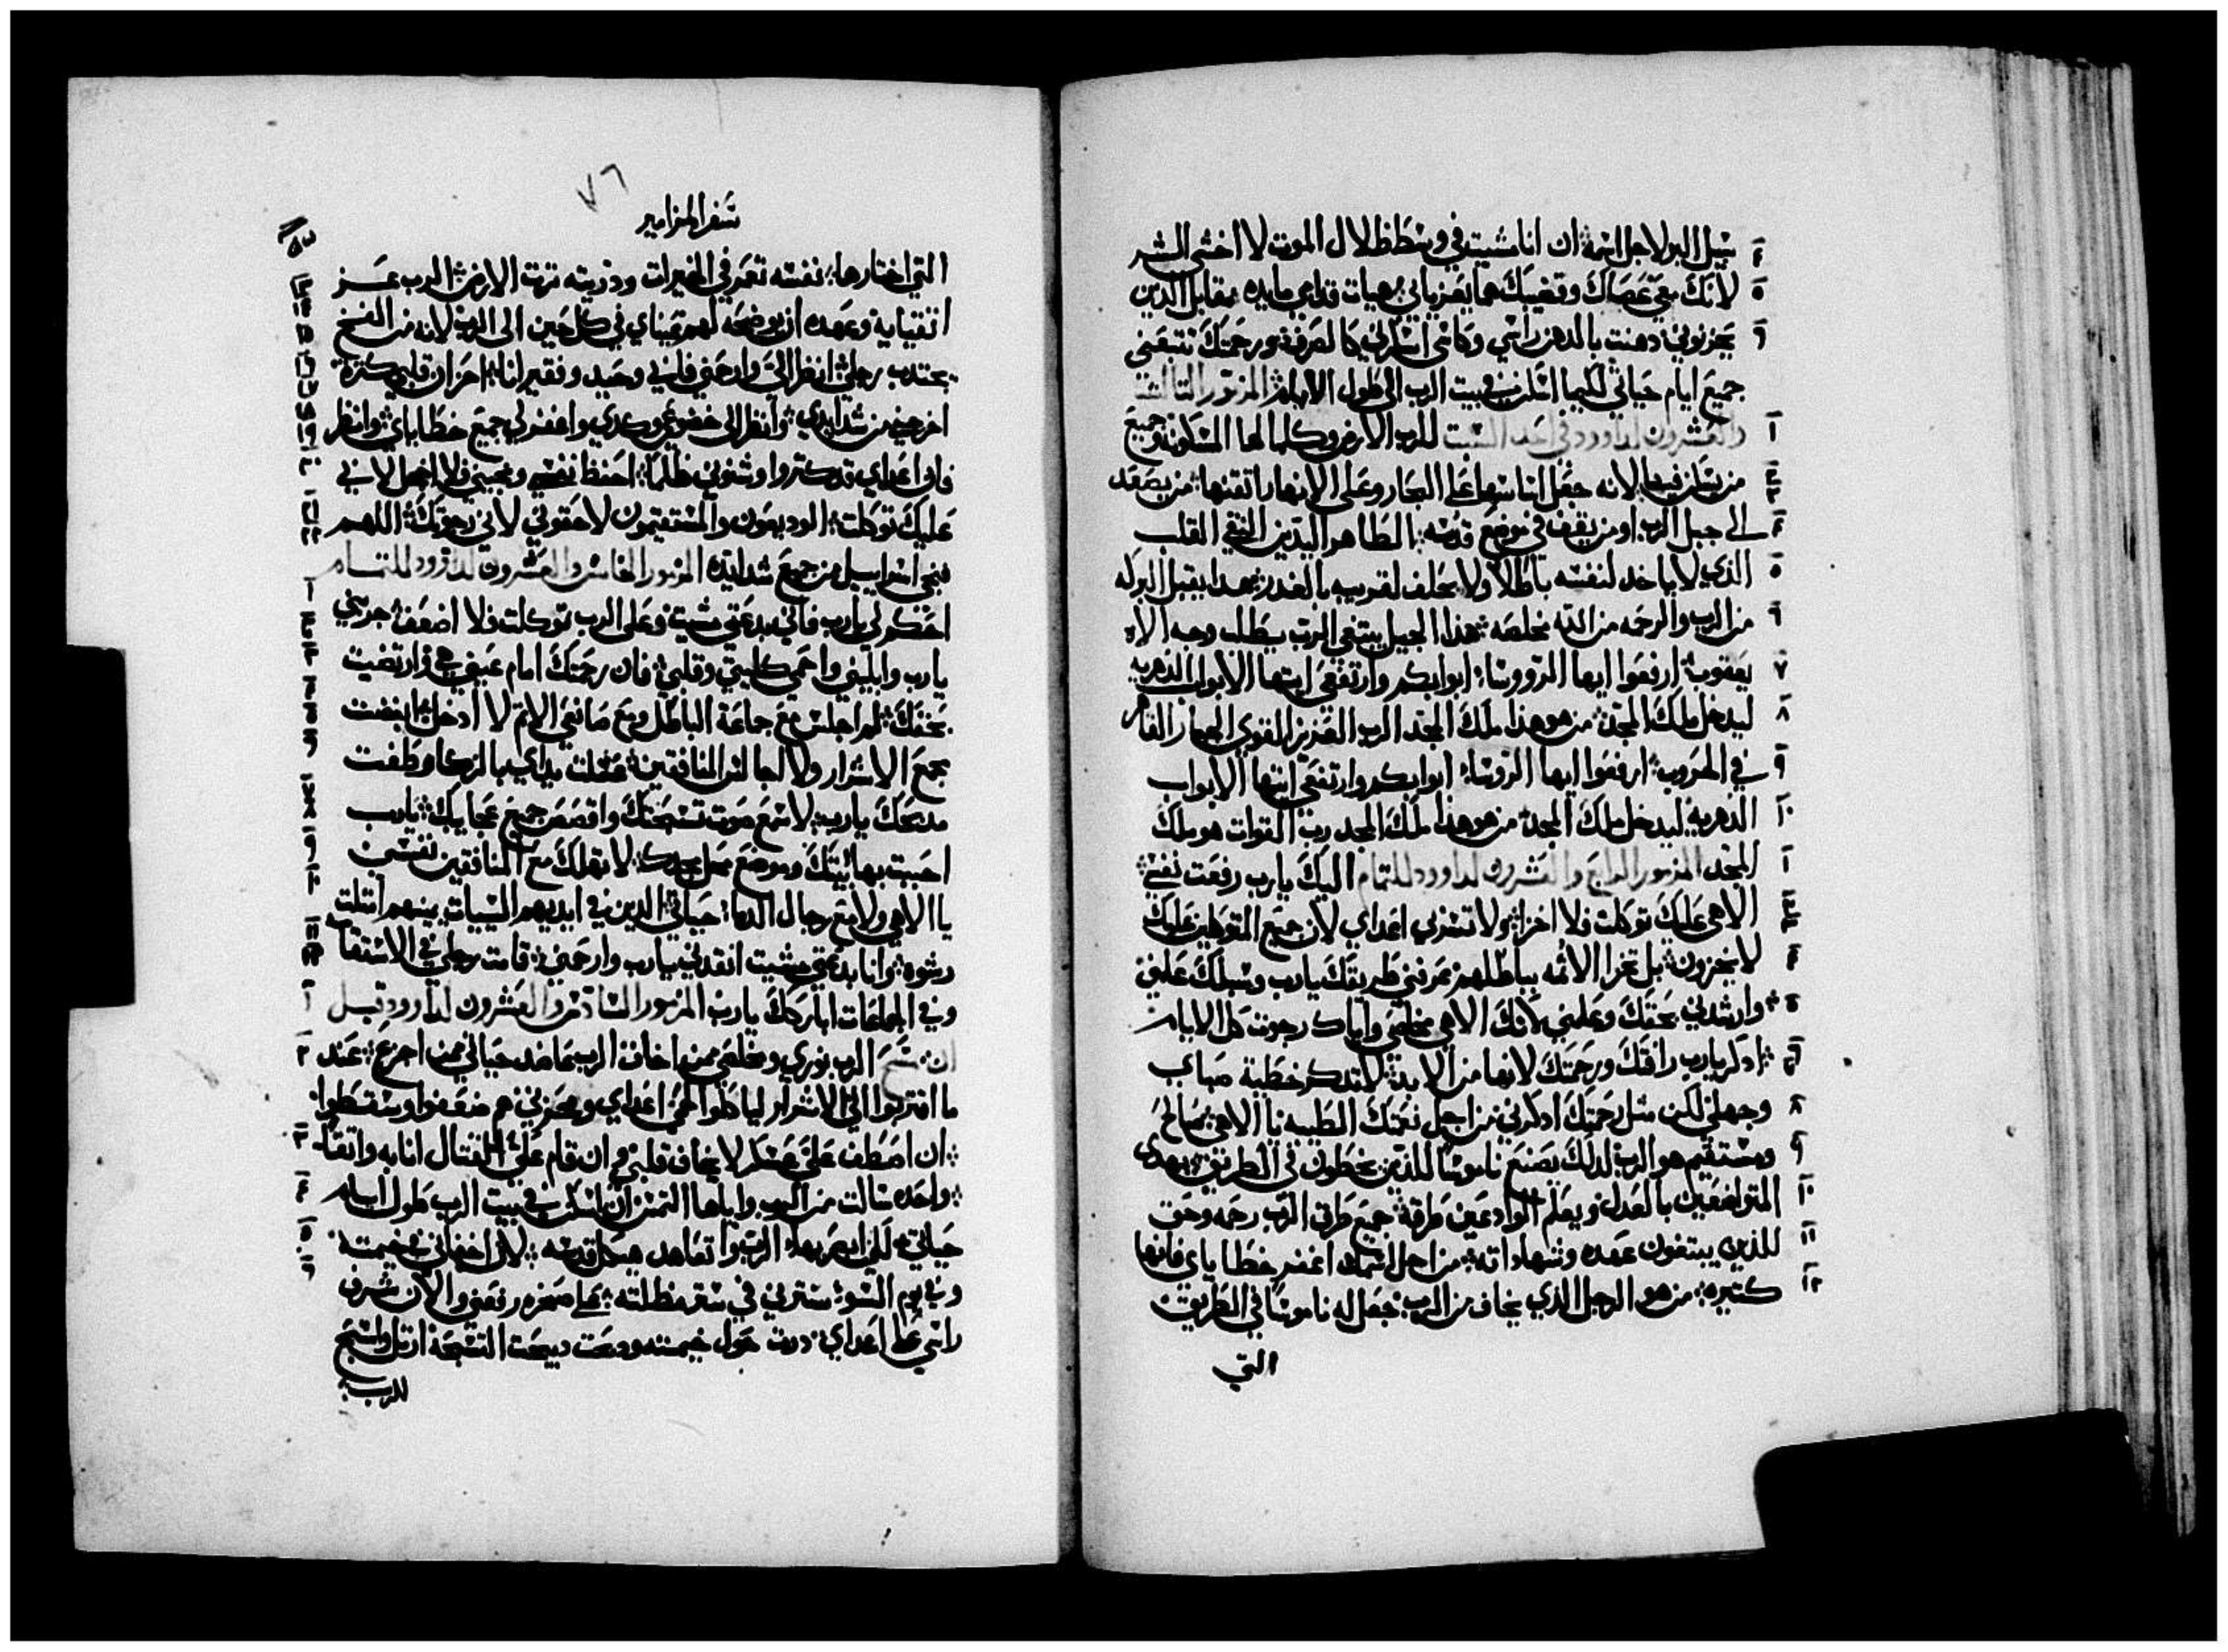 سبيل البر لاجل اسمه ان انا مشيت في وسط ظلال الموت لا اخشى الشر
لانك معي عصاك وقضيبك هما يعزياني هيات قدامي مايده مقابل الدين
يحزنوني دهنت بالدهن راسي وكاسك اسكرني كالصرف ورحمتك تتبعني
جميع ايام حياتي لكيما اسكن في بيت الرب الى طول الايام المزمور التالت
والعشرون لداوود في احد السبت للرب الارض وكمالها المسكونة وجميع
من يسكن فيها لانه جعل اساسها على البحار وعلى الانهار اتقنها من يصعد
الى جبل الرب او من يقف في موضع قدسه الطاهر اليدين النقي القلب
الذي لا ياخد لنفسه باطلا ولا يحلف لقريبه بالغدر فهدا يقبل البركه
من الرب والرحمه من الله مخلصه هذا الجيل يبتغي الرب يطلب وجه الاه
يعقوب ارفعوا ايها الروسا ابوابكم وارتفعي ايتها الابواب الدهريه
ليدخل ملك المجد من هو هذا ملك المجد الرب العزيز القوي الجبار القاهر
في الحروب ارفعوا ايها الروسا ابوابكم وارتفعي ايتها الابواب
الدهريه ليدخل ملك المجد من هو هذا ملك المجد رب القوات هو ملك
المجد المزمور الرابع والعشرون لداوود للتمام اليك يارب رفعت نفسي
الاهي عليك توكلت فلا اخزا ولا تشمت بي اعداي لان جميع المتوكلين عليك
لا يخزون بل تخزا الاثمه بباطلهم عرفني طريقك يارب وسبلك علمني
وارشدني بحقك وعلمني لانك الاهي مخلصي واياك رجوت كل الايام
ادكر يارب رافتك ورحمتك لانها من الابد لا تدكر خطية صباي
وجهلي لكن مثل رحمتك ادكرني من اجل نعمتك الطيبه يا الاهي صالح
ومستقيم هو الرب لدلك يصنع ناموسا للذين يخطون في الطريق يهدي
المتواضعين بالعدل ويعلم الوادعين طرقه جميع طرق الرب رحمه وحق
للذين يبتغون عهده وشهاداته من اجل اسمك اغفر خطاياي فانها
كتيره من هو الرجل الذي يخاف من الرب جعل له ناموسا في الطريق
التي
٧٦
سفر المزامير
التي اختارها نفسه تعمر في الخيرات ودريته ترت الارض الرب عز
اتقيايه وعهده ان يوضحه لهم عيناي في كل حين الى الرب لانه من الفخ
يجتدب رجلي انظر الي وارحمني فانني وحيد وفقير انا احزان قلبي كترة
اخرجني من شدايدي وانظر الى خضوعي وكدي واغفر لي جميع خطاياي وانظر
فان اعداي قد كتروا وشنوني ظلما احفظ نفسي ونجيني فلا اخجل لاني
عليك توكلت الوديعون والمستقيمون لاحقوني لاني رجوتك اللهم
نجي اسراييل من جميع شدايده المزمور الخامس والعشرون لداوود للتمام
احكم لي يارب فاني بدعتي مشيت وعلى الرب توكلت فلا اضعف جربني
يارب وابليني واحمي كليتي وقلبي فان رحمتك امام عيني هي وارتضيت
بحقك لم اجلس مع جماعة الباطل ومع صانعي الاتم لا ادخل ابغضت
مجمع الاشرار ولا اجالس المنافقين غسلت يداي بالزكا وطفت
مدبحك يارب لاسمع صوت تسبحتك واقصص جميع عجايبك يارب
احببت بها بيتك وموضع محل مجدك لا تهلك مع المنافقين نفسي
يا الاهي ولا مع رجال الدما حياتي الدين في ايديهم السيات يمينهم امتلت
رشوه وانا بدعتي مشيت انقدني يارب وارحمني قامت رجلي في الاستقامه
وفي الجماعات اباركك يارب المزمور السادس والعشرون لداوود قبل
ان مسح الرب نوري ومخلصي ممن اخاف الرب عاضد حياتي ممن اجزع عند
ما اقتربوا الي الاشرار لياكلوا لحمي اعداي ومحزني هم ضعفوا وسقطوا
ان اصطف علي عسكر لا يخاف قلبي وان قام علي القتال انا به واتقا
واحده سالت من الرب واياها التمس ان اسكن في بيت الرب طول ايام
حياتي لكي ابصر بهاء الرب واتعاهد هيكل قدسه لانه اخفاني في خيمته
وفي يوم السوء سترني في ستر مظلته على صخره رفعني والان شرف
راسي على اعداي درت حول خيمته ودبحت دبيحت التسبحة ارتل واسبح
للرب